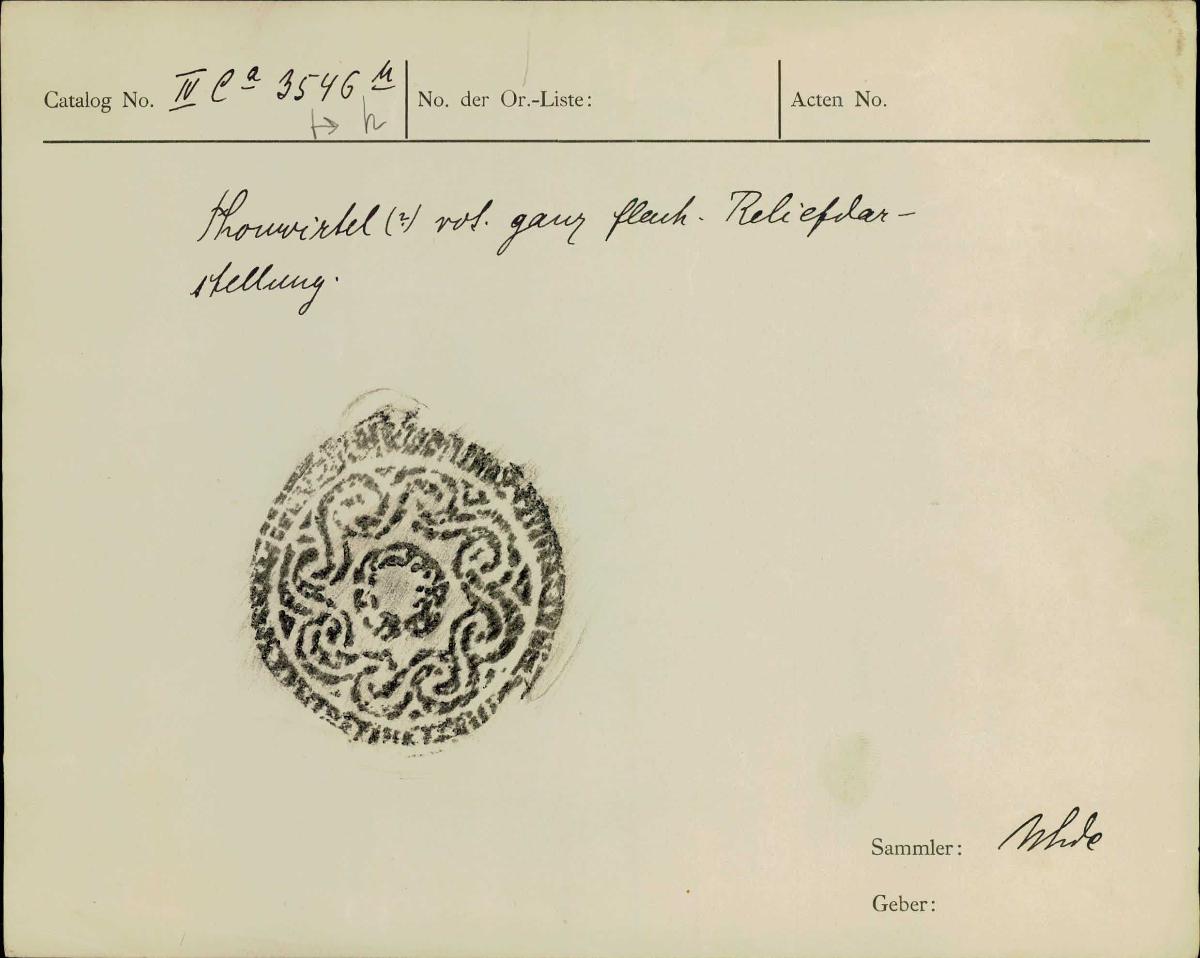 Catalog No. IV Ca 3546 No. der Or.-Liste: Acten No.
h
Thonwirtel (?) rot. ganz flach. Reliefdar-
stellung.
Sammler: Uhde
Geber: